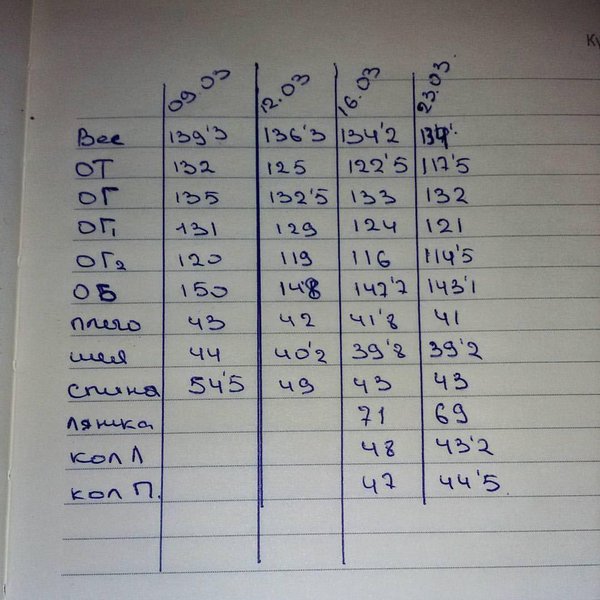 09.03 12.03 16.03 23.03
Вес 139'3 136'3 134'2
ОТ 132 125 122'5 117'5
ОГ 135 132'5 133 132
ОГ1 131 129 124 121
ОГ2 120 119 116 114'5
ОБ 150 148 147'7 143'1
плечо 43 42 41'8 41
шея 44 40'2 39'8 39'2
спина 54'5 49 43 43
ляшка 71 69
кол Л 48 43'2
кол П. 47 44'5